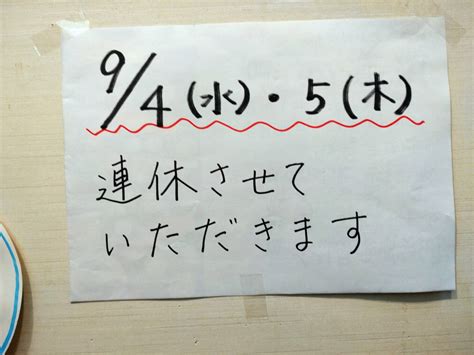 9/4(水)・5(木)
連休させて
いただきます